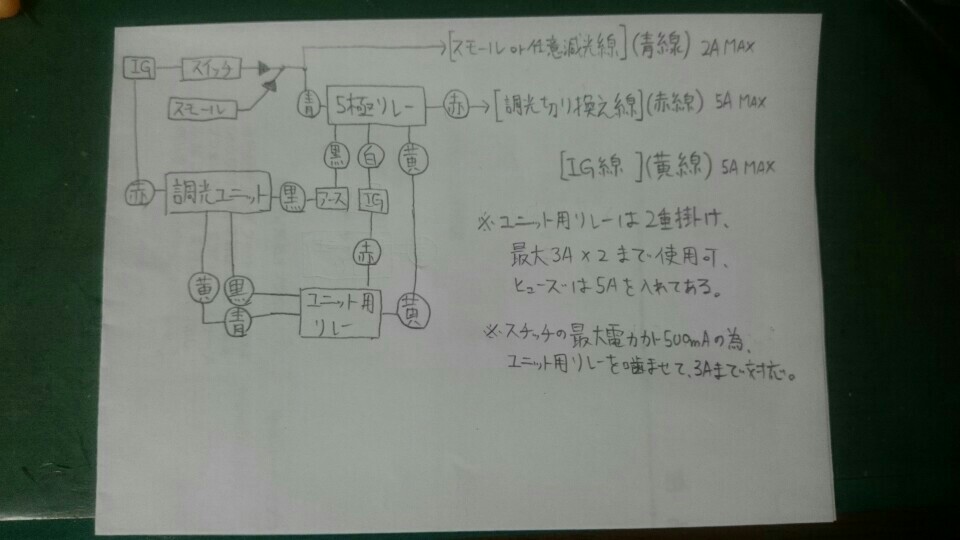 →[スモール or 任意減光線](青線) 2A MAX
IG
スイッチ
スモール
青
5極リレー
赤
→[調光切り換え線](赤線) 5A MAX
黒
白
黄
[IG線](黄線) 5A MAX
赤
調光ユニット
黒
アース
IG
※ユニット用リレーは2重掛け、
最大3A×2まで使用可、
ヒューズは5Aを入れてある。
赤
黄
黒
青
ユニット用
リレー
黄
※スチッチの最大電力が500mAの為、
ユニット用リレーを噛ませて、3Aまで対応。